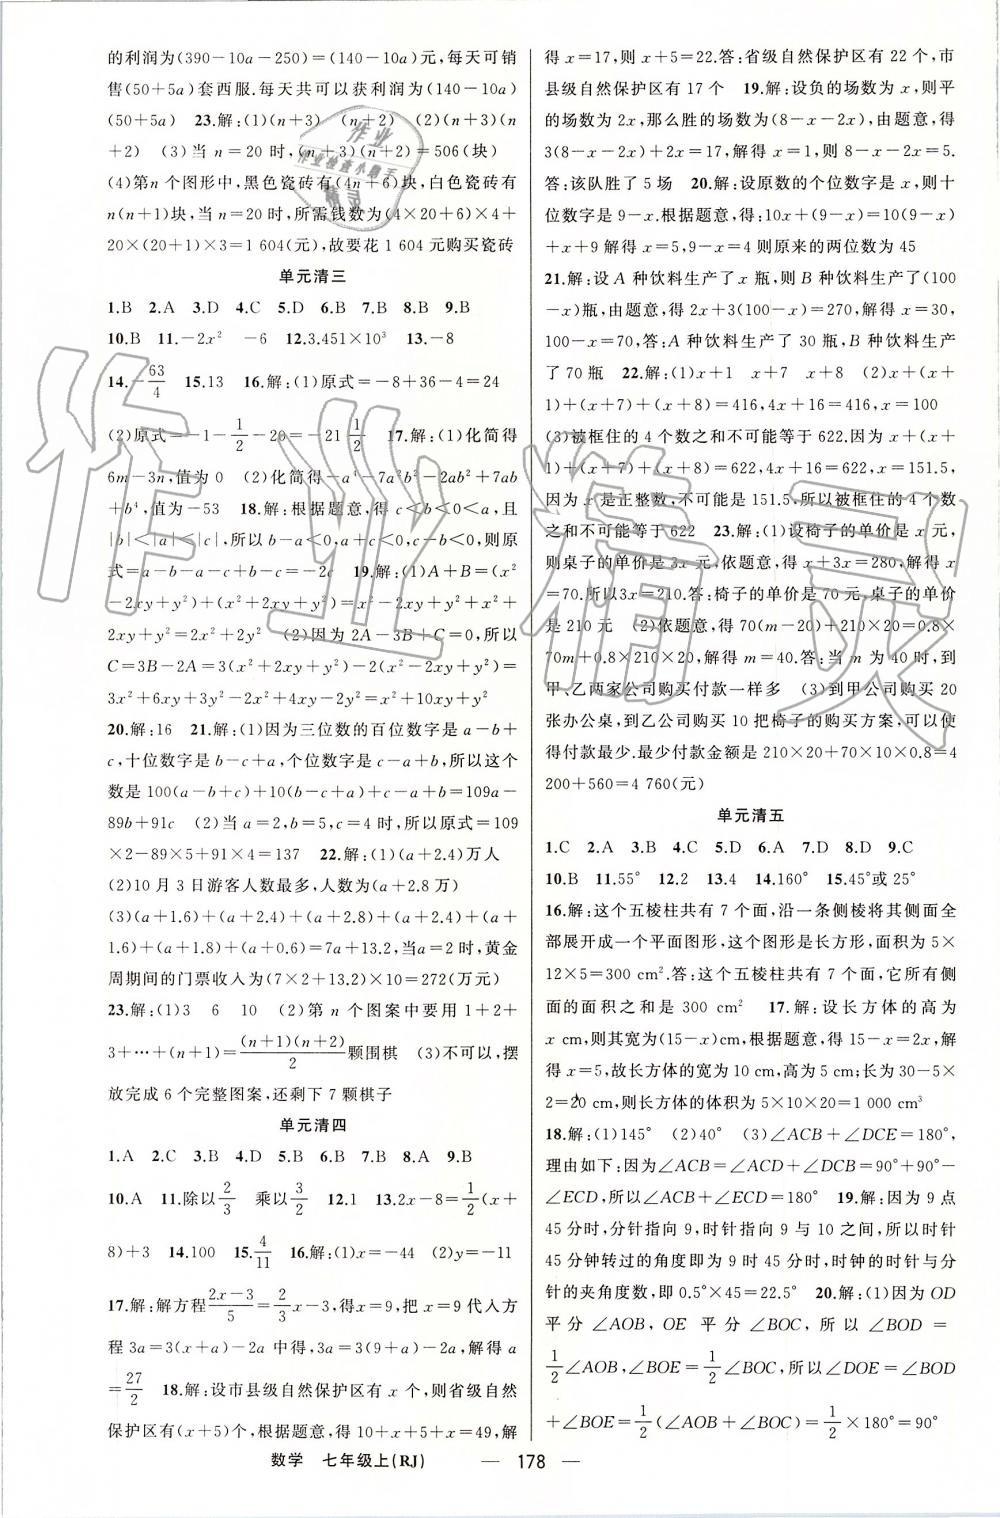 的利润为(390－10a－250)＝(140－10a)元,每天可销
售(50+5a)套西服.每天共可以获利润为(140－10a)
(50+5a)　23.解:(1)(n+3)　(n+2)　(2)(n+3)(n
+2)　(3)当 n＝20 时,(n+3)(n+2)＝506(块)
(4)第n 个图形中,黑色瓷砖有(4n+6)块,白色瓷砖有
n(n+1)块,当 n＝20 时,所需钱数为(4×20+6)×4+
20×(20+1)×3＝1 604(元),故要花 1 604 元购买瓷砖
单元清三
1.B　2.A　3.D　4.C　5.D　6.B　7.B　8.B　9.B
10.B　11.－2x²　－6　12.3.451×10³　13.－8
14.－63/4　15.13　16.解:(1)原式＝－8+36－4＝24
(2)原式＝－1－1/2－20＝－21 1/2　17.解:(1)化简得
6m－3n,值为 0　(2)化简得－a⁴－7a²b²－2ab²+7ab
+b⁴,值为－53　18.解:根据题意,得 c＜b＜0＜a,且
|b|＜|a|＜|c|,所以 b－a＜0,a+c＜0,b－c＞0,则原
式＝a－b－a－c+b－c＝－2c　19.解:(1)A+B＝(x²
－2xy+y²)+(x²+2xy+y²)＝x²－2xy+y²+x²+
2xy+y²＝2x²+2y²　(2)因为 2A－3B+C＝0,所以
C＝3B－2A＝3(x²+2xy+y²)－2(x²－2xy+y²)＝
3x²+6xy+3y²－2x²+4xy－2y²＝x²+10xy+y²
20.解:16　21.解:(1)因为三位数的百位数字是 a－b+
c,十位数字是 b－c+a,个位数字是 c－a+b,所以这个
数是 100(a－b+c)+10(b－c+a)+c－a+b＝109a－
89b+91c　(2)当 a＝2,b＝5,c＝4 时,所以原式＝109
×2－89×5+91×4＝137　22.解:(1)(a+2.4)万人
(2)10 月 3 日游客人数最多,人数为(a+2.8 万)
(3)(a+1.6)+(a+2.4)+(a+2.8)+(a+2.4)+(a+
1.6)+(a+1.8)+(a+0.6)＝7a+13.2,当 a＝2 时,黄金
周期间的门票收入为(7×2+13.2)×10＝272(万元)
23.解:(1)3　6　10　(2)第 n 个图案中要用 1+2+
3+…+(n+1)＝(n+1)(n+2)/2颗围棋　(3)不可以,摆
放完成 6 个完整图案,还剩下 7 颗棋子
单元清四
1.A　2.C　3.B　4.D　5.B　6.B　7.B　8.A　9.B
10.A　11.除以2/3　乘以3/2　12.1　13.2x－8＝1/2(x+
8)+3　14.100　15.4/11　16.解:(1)x＝－44　(2)y＝－11
17.解:解方程2x－3/5＝2/3x－3,得x＝9,把 x＝9 代入方
程 3a＝3(x+a)－2a 中得,3a＝3(9+a)－2a,解得 a
＝27/2　18.解:设市县级自然保护区有 x 个,则省级自然
保护区有(x+5)个.根据题意,得 10+x+5+x＝49,解
得 x＝17,则 x+5＝22.答:省级自然保护区有 22 个,市
县级自然保护区有 17 个　19.解:设负的场数为 x,则平
的场数为 2x,那么胜的场数为(8－x－2x),由题意,得
3(8－x－2x)+2x＝17,解得 x＝1,则 8－x－2x＝5.
答:该队胜了 5 场　20.解:设原数的个位数字是 x,则十
位数字是 9－x.根据题意,得:10x+(9－x)＝10(9－x)
+x+9 解得 x＝5,9－x＝4 则原来的两位数为 45
21.解:设 A 种饮料生产了 x 瓶,则 B 种饮料生产了(100
－x)瓶,由题意,得 2x+3(100－x)＝270,解得 x＝30,
100－x＝70,答:A 种饮料生产了 30 瓶,B 种饮料生产
了 70 瓶　22.解:(1)x+1　x+7　x+8　(2)x+(x+
1)+(x+7)+(x+8)＝416,4x+16＝416,x＝100
(3)被框住的 4 个数之和不可能等于 622.因为 x+(x+
1)+(x+7)+(x+8)＝622,4x+16＝622,x＝151.5,
因为 x 是正整数,不可能是 151.5,所以被框住的 4 个数
之和不可能等于 622　23.解:(1)设椅子的单价是 x 元,
则桌子的单价是 3x 元,依题意,得 x+3x＝280,解得 x＝
70.所以3x＝210.答:椅子的单价是 70 元,桌子的单价
是 210 元　(2)依题意,得 70(m－20)+210×20＝0.8×
70m+0.8×210×20,解得 m＝40.答:当 m 为 40 时,到
甲、乙两家公司购买付款一样多　(3)到甲公司购买 20
张办公桌,到乙公司购买 10 把椅子的购买方案,可以使
得付款最少.最少付款金额是 210×20+70×10×0.8＝4
200+560＝4 760(元)
单元清五
1.C　2.A　3.B　4.C　5.D　6.A　7.D　8.D　9.C
10.B　11.55°　12.2　13.4　14.160°　15.45°或 25°
16.解:这个五棱柱共有 7 个面,沿一条侧棱将其侧面全
部展开成一个平面图形,这个图形是长方形,面积为 5×
12×5＝300 cm².答:这个五棱柱共有 7 个面,它所有侧
面的面积之和是 300 cm²　17.解:设长方体的高为
x cm,则宽为(15－x)cm,根据题意,得 15－x＝2x,解
得 x＝5,故长方体的宽为 10 cm,高为 5 cm;则长为 30－5×
2＝20 cm,则长方体的体积为 5×10×20＝1 000 cm³
18.解:(1)145°　(2)40°　(3)∠ACB+∠DCE＝180°,
理由如下:因为∠ACB＝∠ACD+∠DCB＝90°+90°－
∠ECD,所以∠ACB+∠ECD＝180°　19.解:因为 9 点
45分时,分针指向 9,时针指向 9 与 10 之间,所以时针
45分钟转过的角度即为 9 时 45 分时,时钟的时针与分
针的夹角度数,即 0.5°×45＝22.5°　20.解:(1)因为 OD
平分 ∠AOB, OE 平分 ∠BOC, 所以 ∠BOD ＝
1/2∠AOB,∠BOE＝1/2∠BOC,所以∠DOE＝∠BOD
+∠BOE＝1/2(∠AOB+∠BOC)＝1/2×180°＝90°
数学　七年级上(RJ)　— 178 —